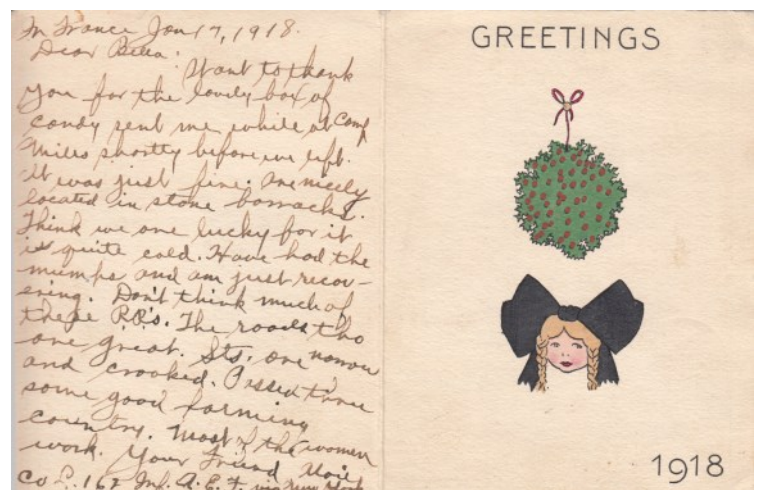 In France Jan 17, 1918.
Dear Bella:
Want to thank
you for the lovely box of
candy sent me while at Camp
Mills shortly before we left.
It was just fine. Are nicely
located in stone barracks.
Think we are lucky for it
is quite cold. Have had the
mumps and am just recov-
ering. Don't think much of
these RR's. The roads tho
are great. Sts. are narrow
and crooked. Passed thru
some good farming
country. Most of the women
work. Your Friend
Co L. 162 Inf. A.E.F. via New York
GREETINGS
1918